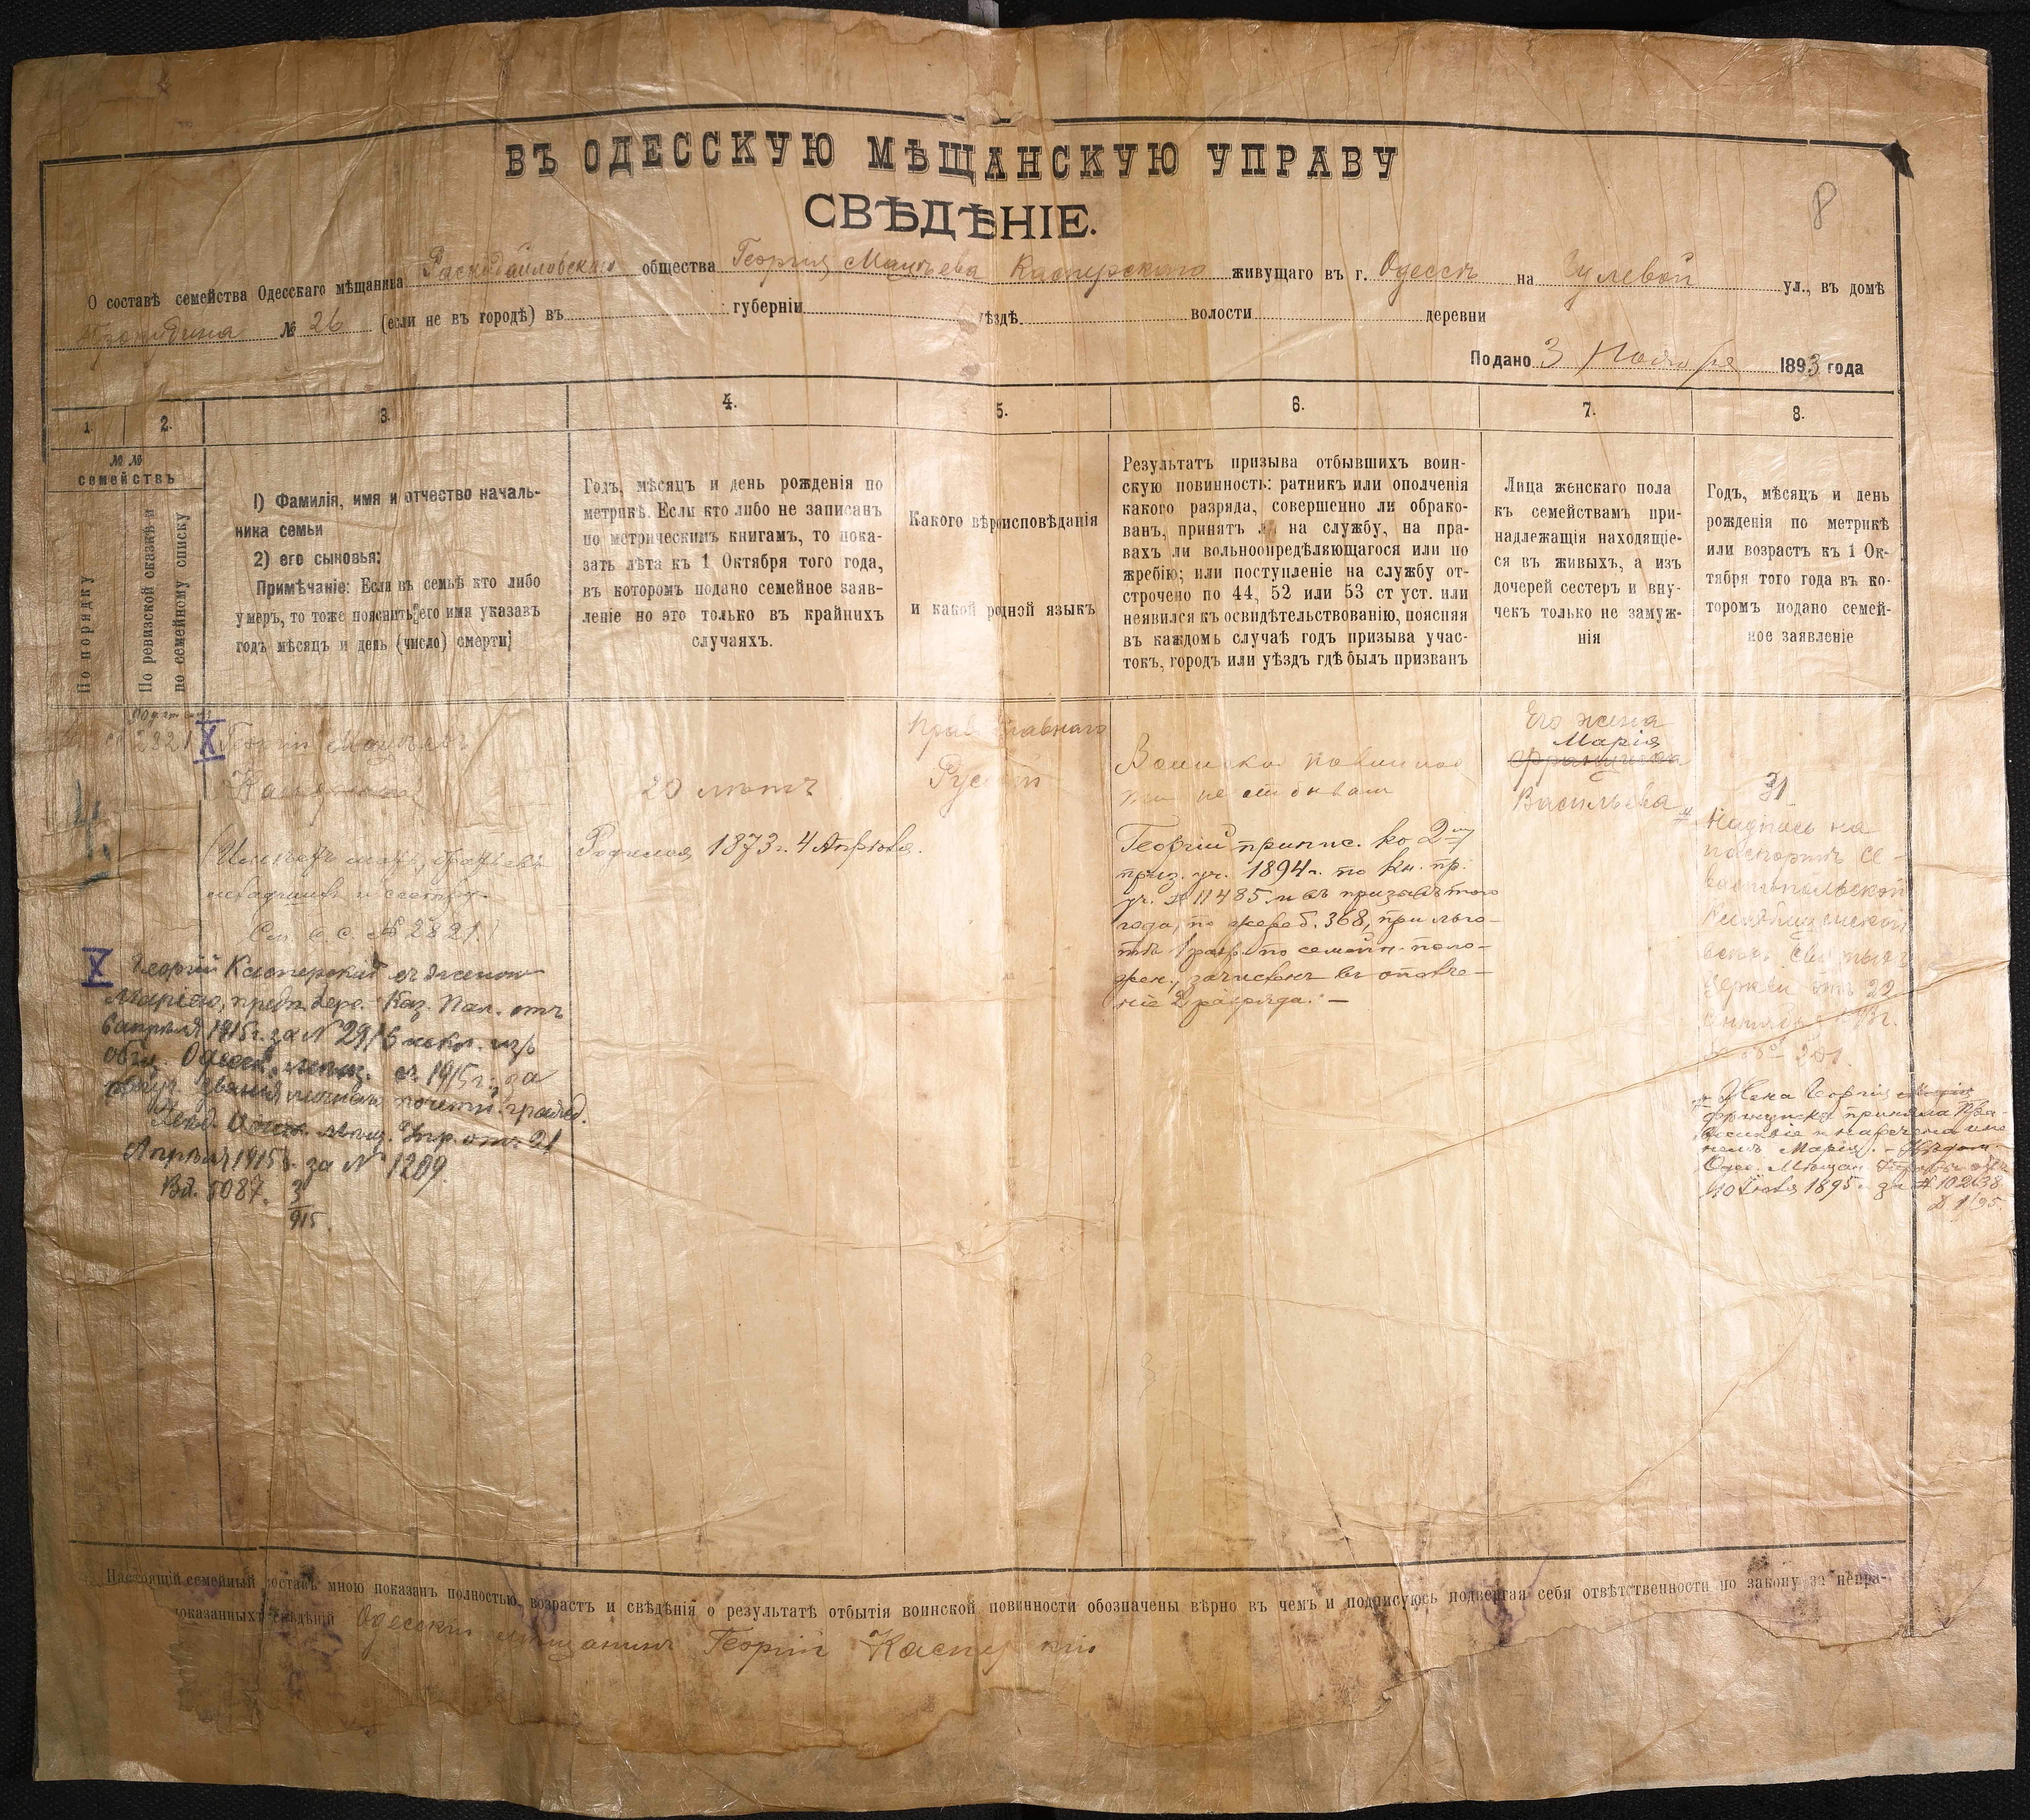 8
ВЪ ОДЕССКУЮ МѢЩАНСКУЮ УПРАВУ
СВѢДѢНІЕ.
О составѣ семейства Одесскаго мѣщанина Раскидайловскаго общества Георгія Каспирскаго живущаго въ г. Одессѣ на ул., въ домѣ
№ 26 (если не въ городѣ) въ губерніи уѣздѣ волости деревни
Подано 3 Ноября 1893 года
1 2. 3. 4. 5. 6. 7. 8.
№ №
семействъ
По порядку
По ревизской сказкѣ и
по семейному списку
1) Фамилія, имя и отчество началь-
ника семьи
2) его сыновья:
Примѣчаніе: Если въ семьѣ кто либо
умеръ, то тоже пояснить его имя указавъ
годъ мѣсяцъ и день (число) смерти;
Годъ, мѣсяцъ и день рожденія по
метрикѣ. Если кто либо не записанъ
по метрическимъ книгамъ, то пока-
зать лѣта къ 1 Октября того года,
въ которомъ подано семейное заяв-
леніе но это только въ крайнихъ
случаяхъ.
Какого вѣроисповѣданія
и какой родной языкъ
Результатъ призыва отбывшихъ воин-
скую повинность: ратникъ или ополченія
какого разряда, совершенно ли обрако-
ванъ, принятъ ли на службу, на пра-
вахъ ли вольноопредѣляющагося или по
жребію; или поступленіе на службу от-
строчено по 44, 52 или 53 ст уст. или
неявился къ освидѣтельствованію, поясняя
въ каждомъ случаѣ годъ призыва учас-
токъ, городъ или уѣздъ гдѣ былъ призванъ
Лица женскаго пола
къ семействамъ при-
надлежащія находящіе-
ся въ живыхъ, а изъ
дочерей сестеръ и вну-
чекъ только не замуж-
нія
Годъ, мѣсяцъ и день
рожденія по метрикѣ
или возрастъ къ 1 Ок-
тября того года въ ко-
торомъ подано семей-
ное заявленіе
2821 X Георгій
4.
Имѣетъ мать, братьевъ
и сестру
См. с. с. № 2821.
X Георгій Касперскій съ женою
Маріею, предп. Херс. Каз. Пал. отъ
6 апрѣля 1915 г. за № 2916 искл. изъ
общ. Одесск. мѣщ. съ 1915 г. за
получ. званія личнаго почетн. гражд.
Увѣд. Одесск. мѣщ. Упр. от. 21
Апрѣля 1915 г. за № 1209.
Вх. 5087. 3/915.
20 лѣтъ
Родился 1873 г. 4 Апрѣля.
Православнаго
Русскій
Воинской повиннос
ти не отбывалъ
Георгій припис. ко 2му
приз. уч. 1894 г. по кн. пр.
уч. № 11485 и въ призывѣ того
года, по жереб. 368, при льго-
тѣ 1 разр. по семейн. поло-
жен., зачисленъ въ ополче-
ніе 2 разряда. —
Его жена
Марія
Француска
Васильева
21
Надпись на
паспортѣ Се-
вастопольской
Кладбищенской
Всѣхъ Святыхъ
Церкви отъ 22
№ 201.
Жена Георгія Марія
Француска приняла Пра-
вославіе и наречена име
немъ Марія. - Увѣдом.
Одес. Мѣщан. Управы отъ
10 Іюля 1895 г. за № 10238
Д. 1/95.
Настоящій семейный составъ мною показанъ полностью, возрастъ и свѣдѣнія о результатѣ отбытія воинской повинности обозначены вѣрно въ чемъ и подписуюсь подвергая себя отвѣтственности по закону за непра-
показанныхъ свѣдѣній Одесскій мѣщанинъ Георгій